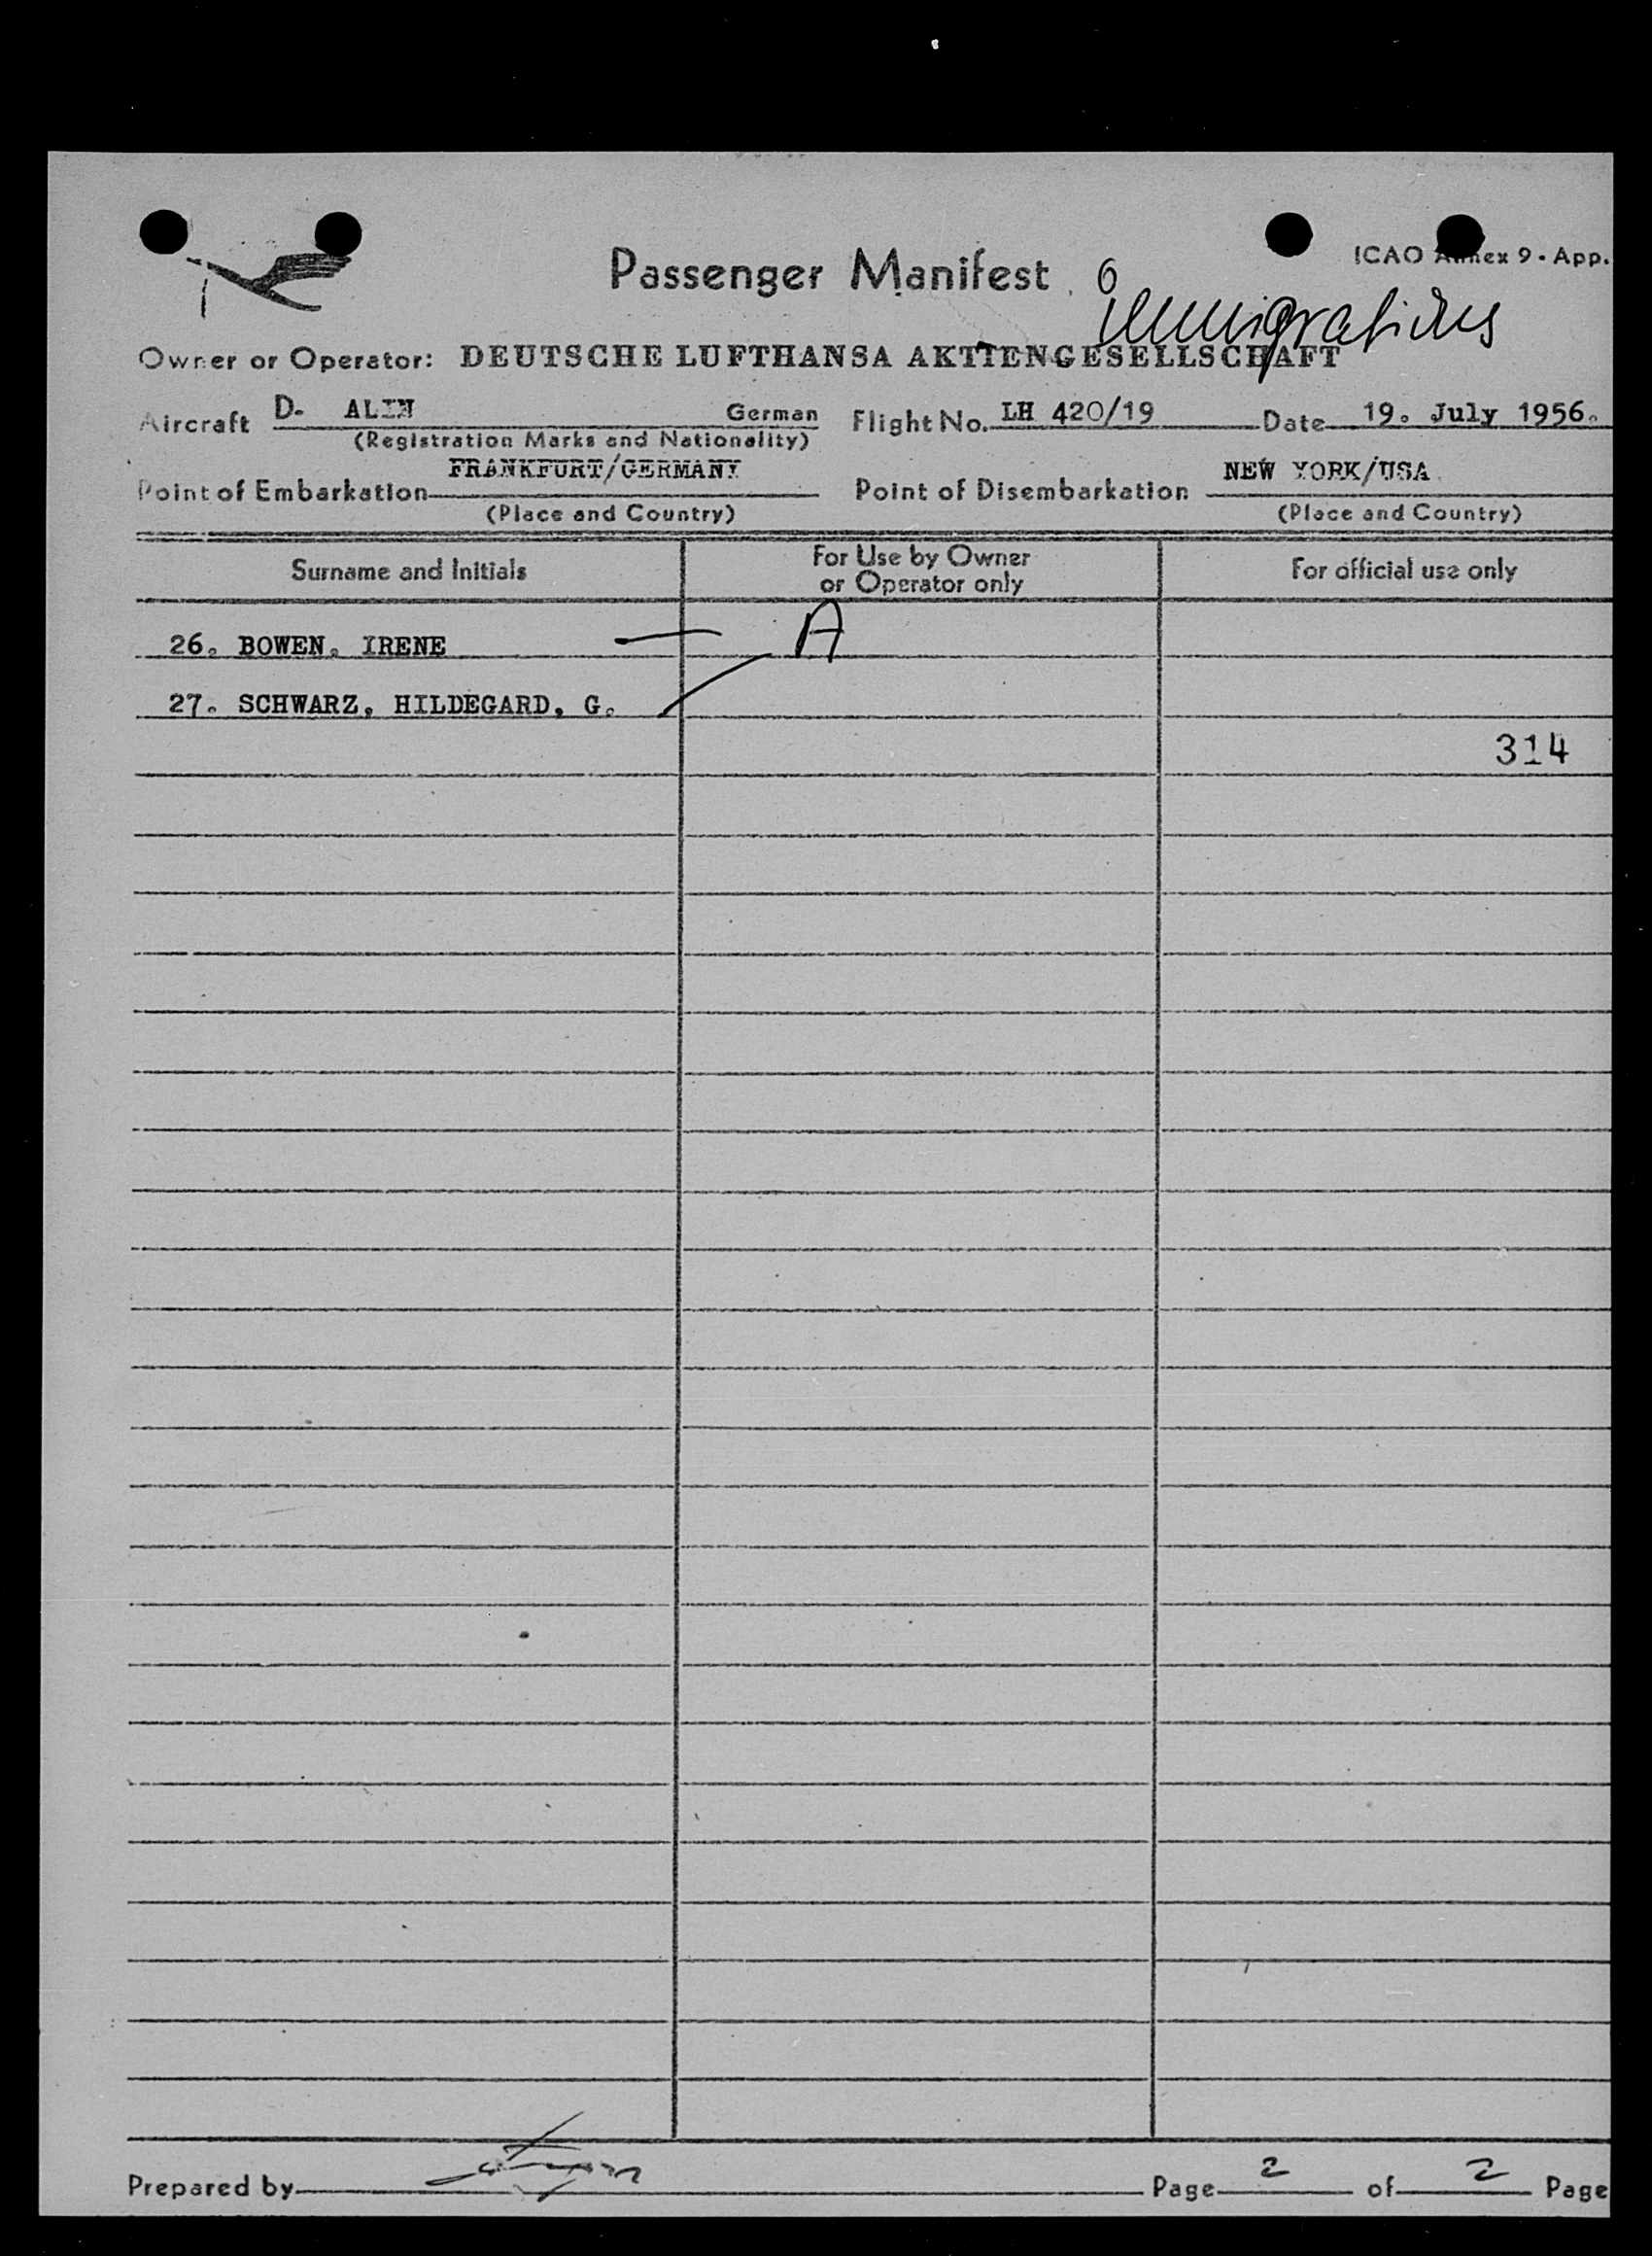 ICAO Annex 9 - App.
Passenger Manifest 6
immigrations
Owner or Operator: DEUTSCHE LUFTHANSA AKTIENGESELLSCHAFT
Aircraft D- ALIN German Flight No. LH 420/19 Date 19. July 1956.
(Registration Marks and Nationality)
Point of Embarkation FRANKFURT/GERMANY Point of Disembarkation NEW YORK/USA
(Place and Country) (Place and Country)
Surname and Initials For Use by Owner or Operator only For official use only
26. BOWEN. IRENE A
27. SCHWARZ, HILDEGARD, G.
314
Prepared by Page 2 of 2 Page